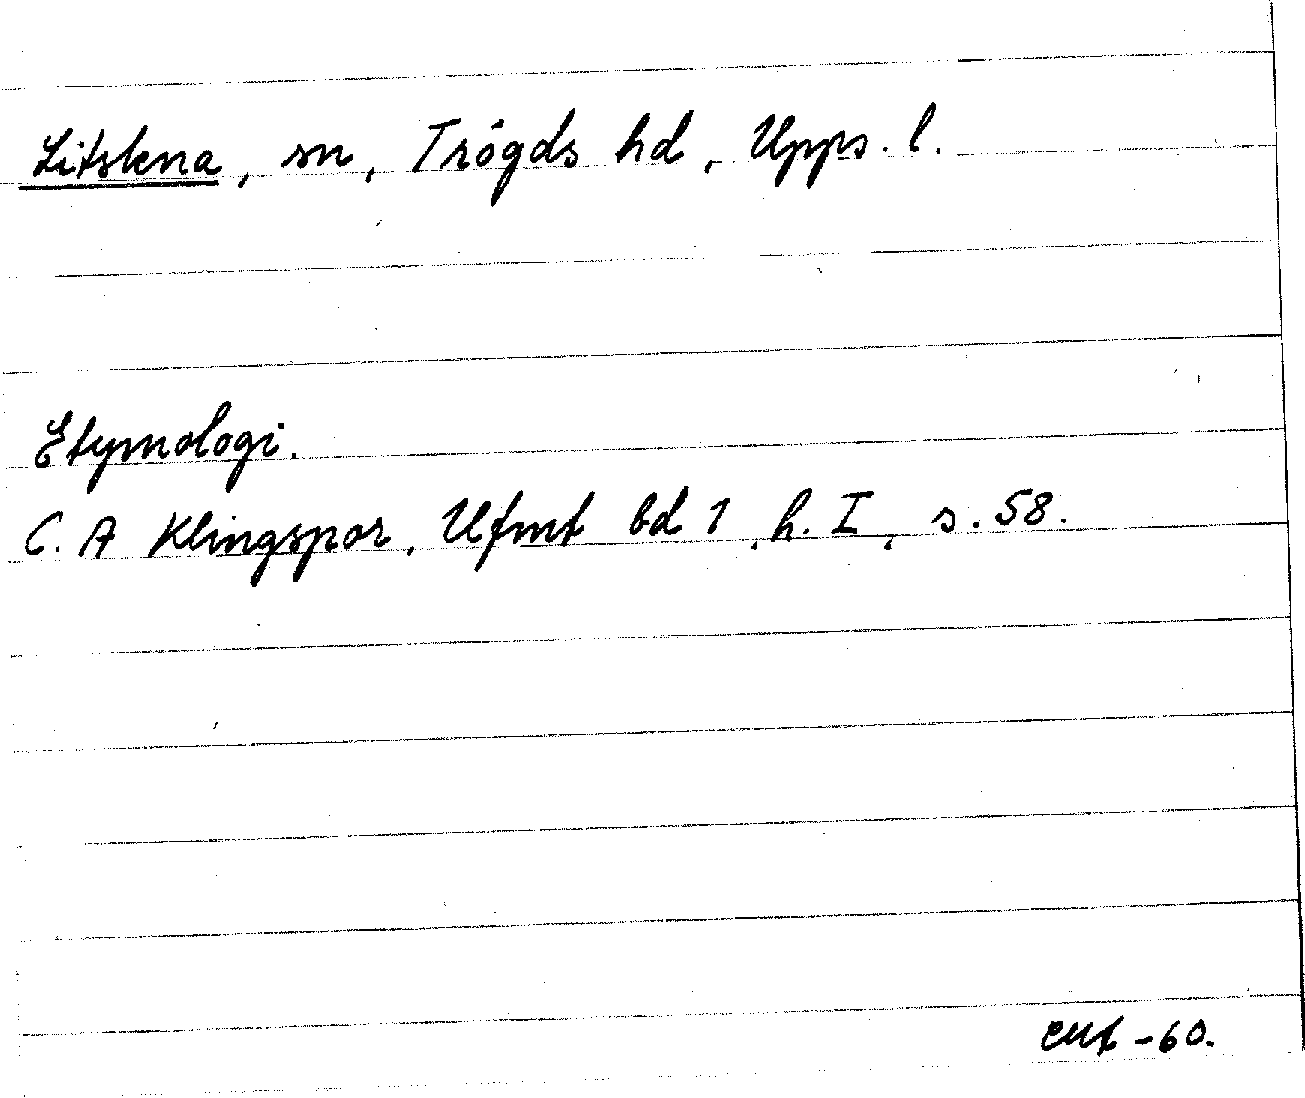 Litslena, sn, Trögds hd, Upps. l.
Etymologi.
C. A Klingspor, Ufmt bd 1, h. I, s. 58.
-60.